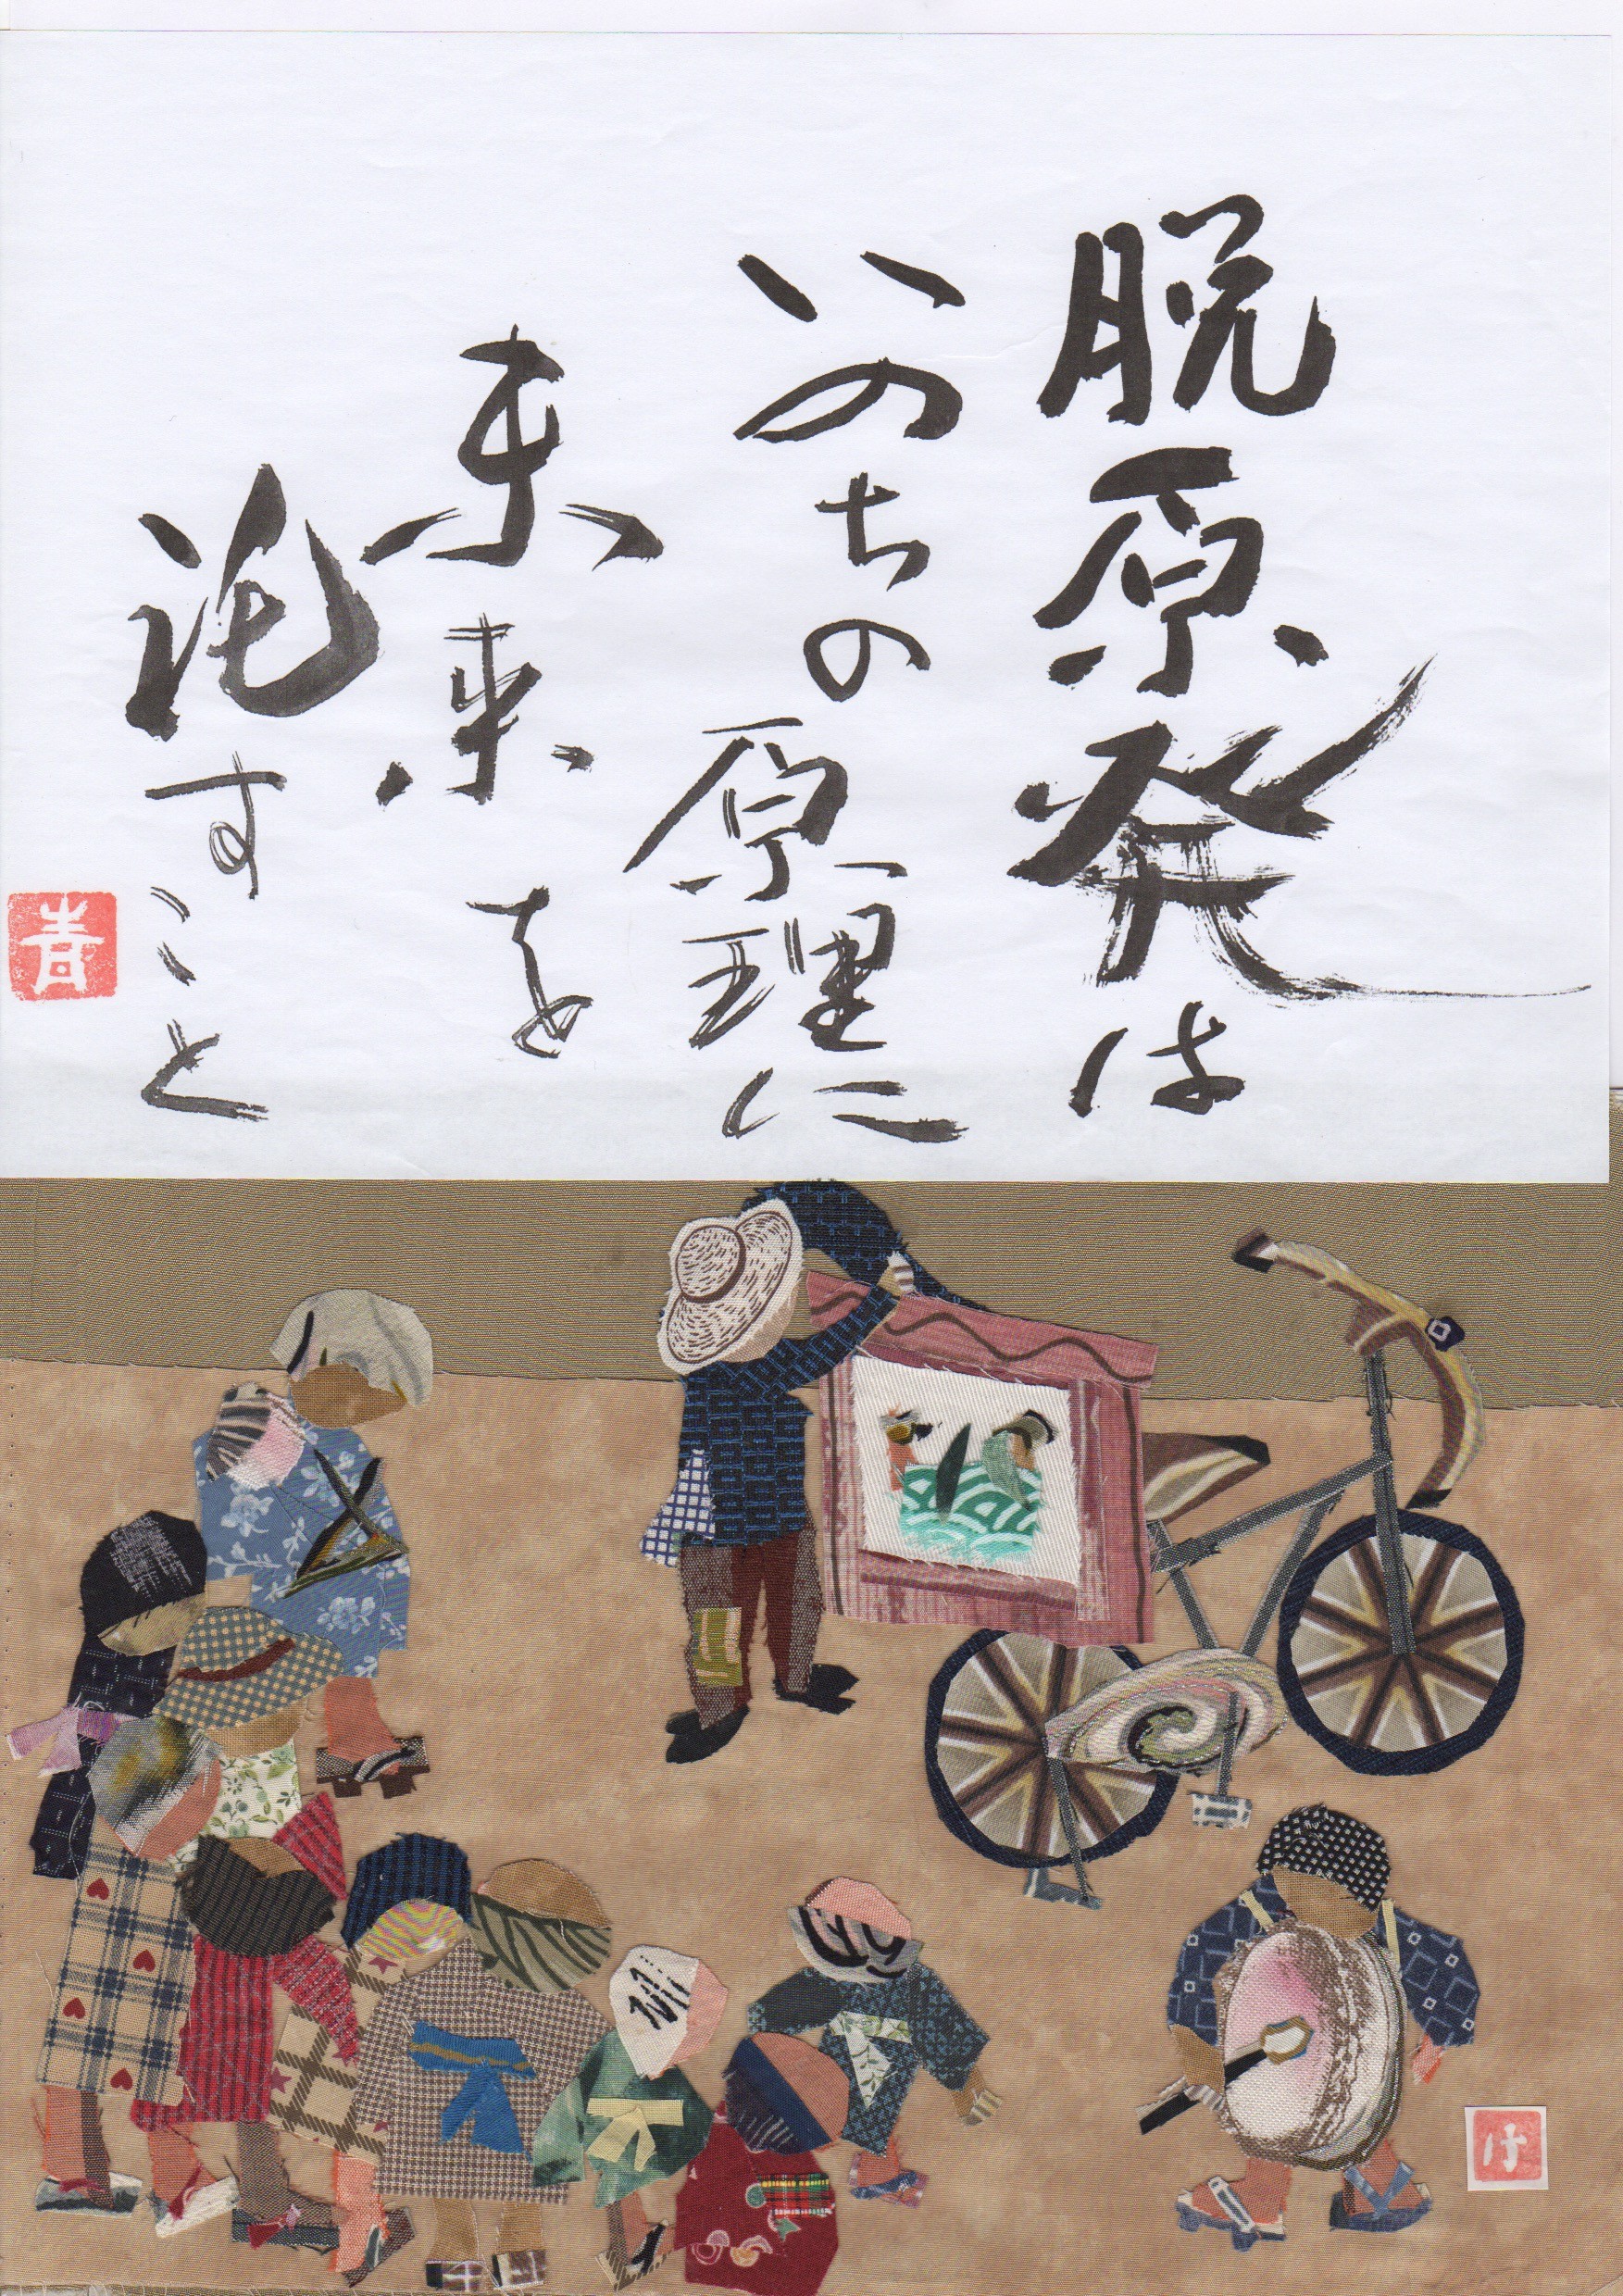 脱原発は
いのちの原理に
未来を
託すこと
青
け